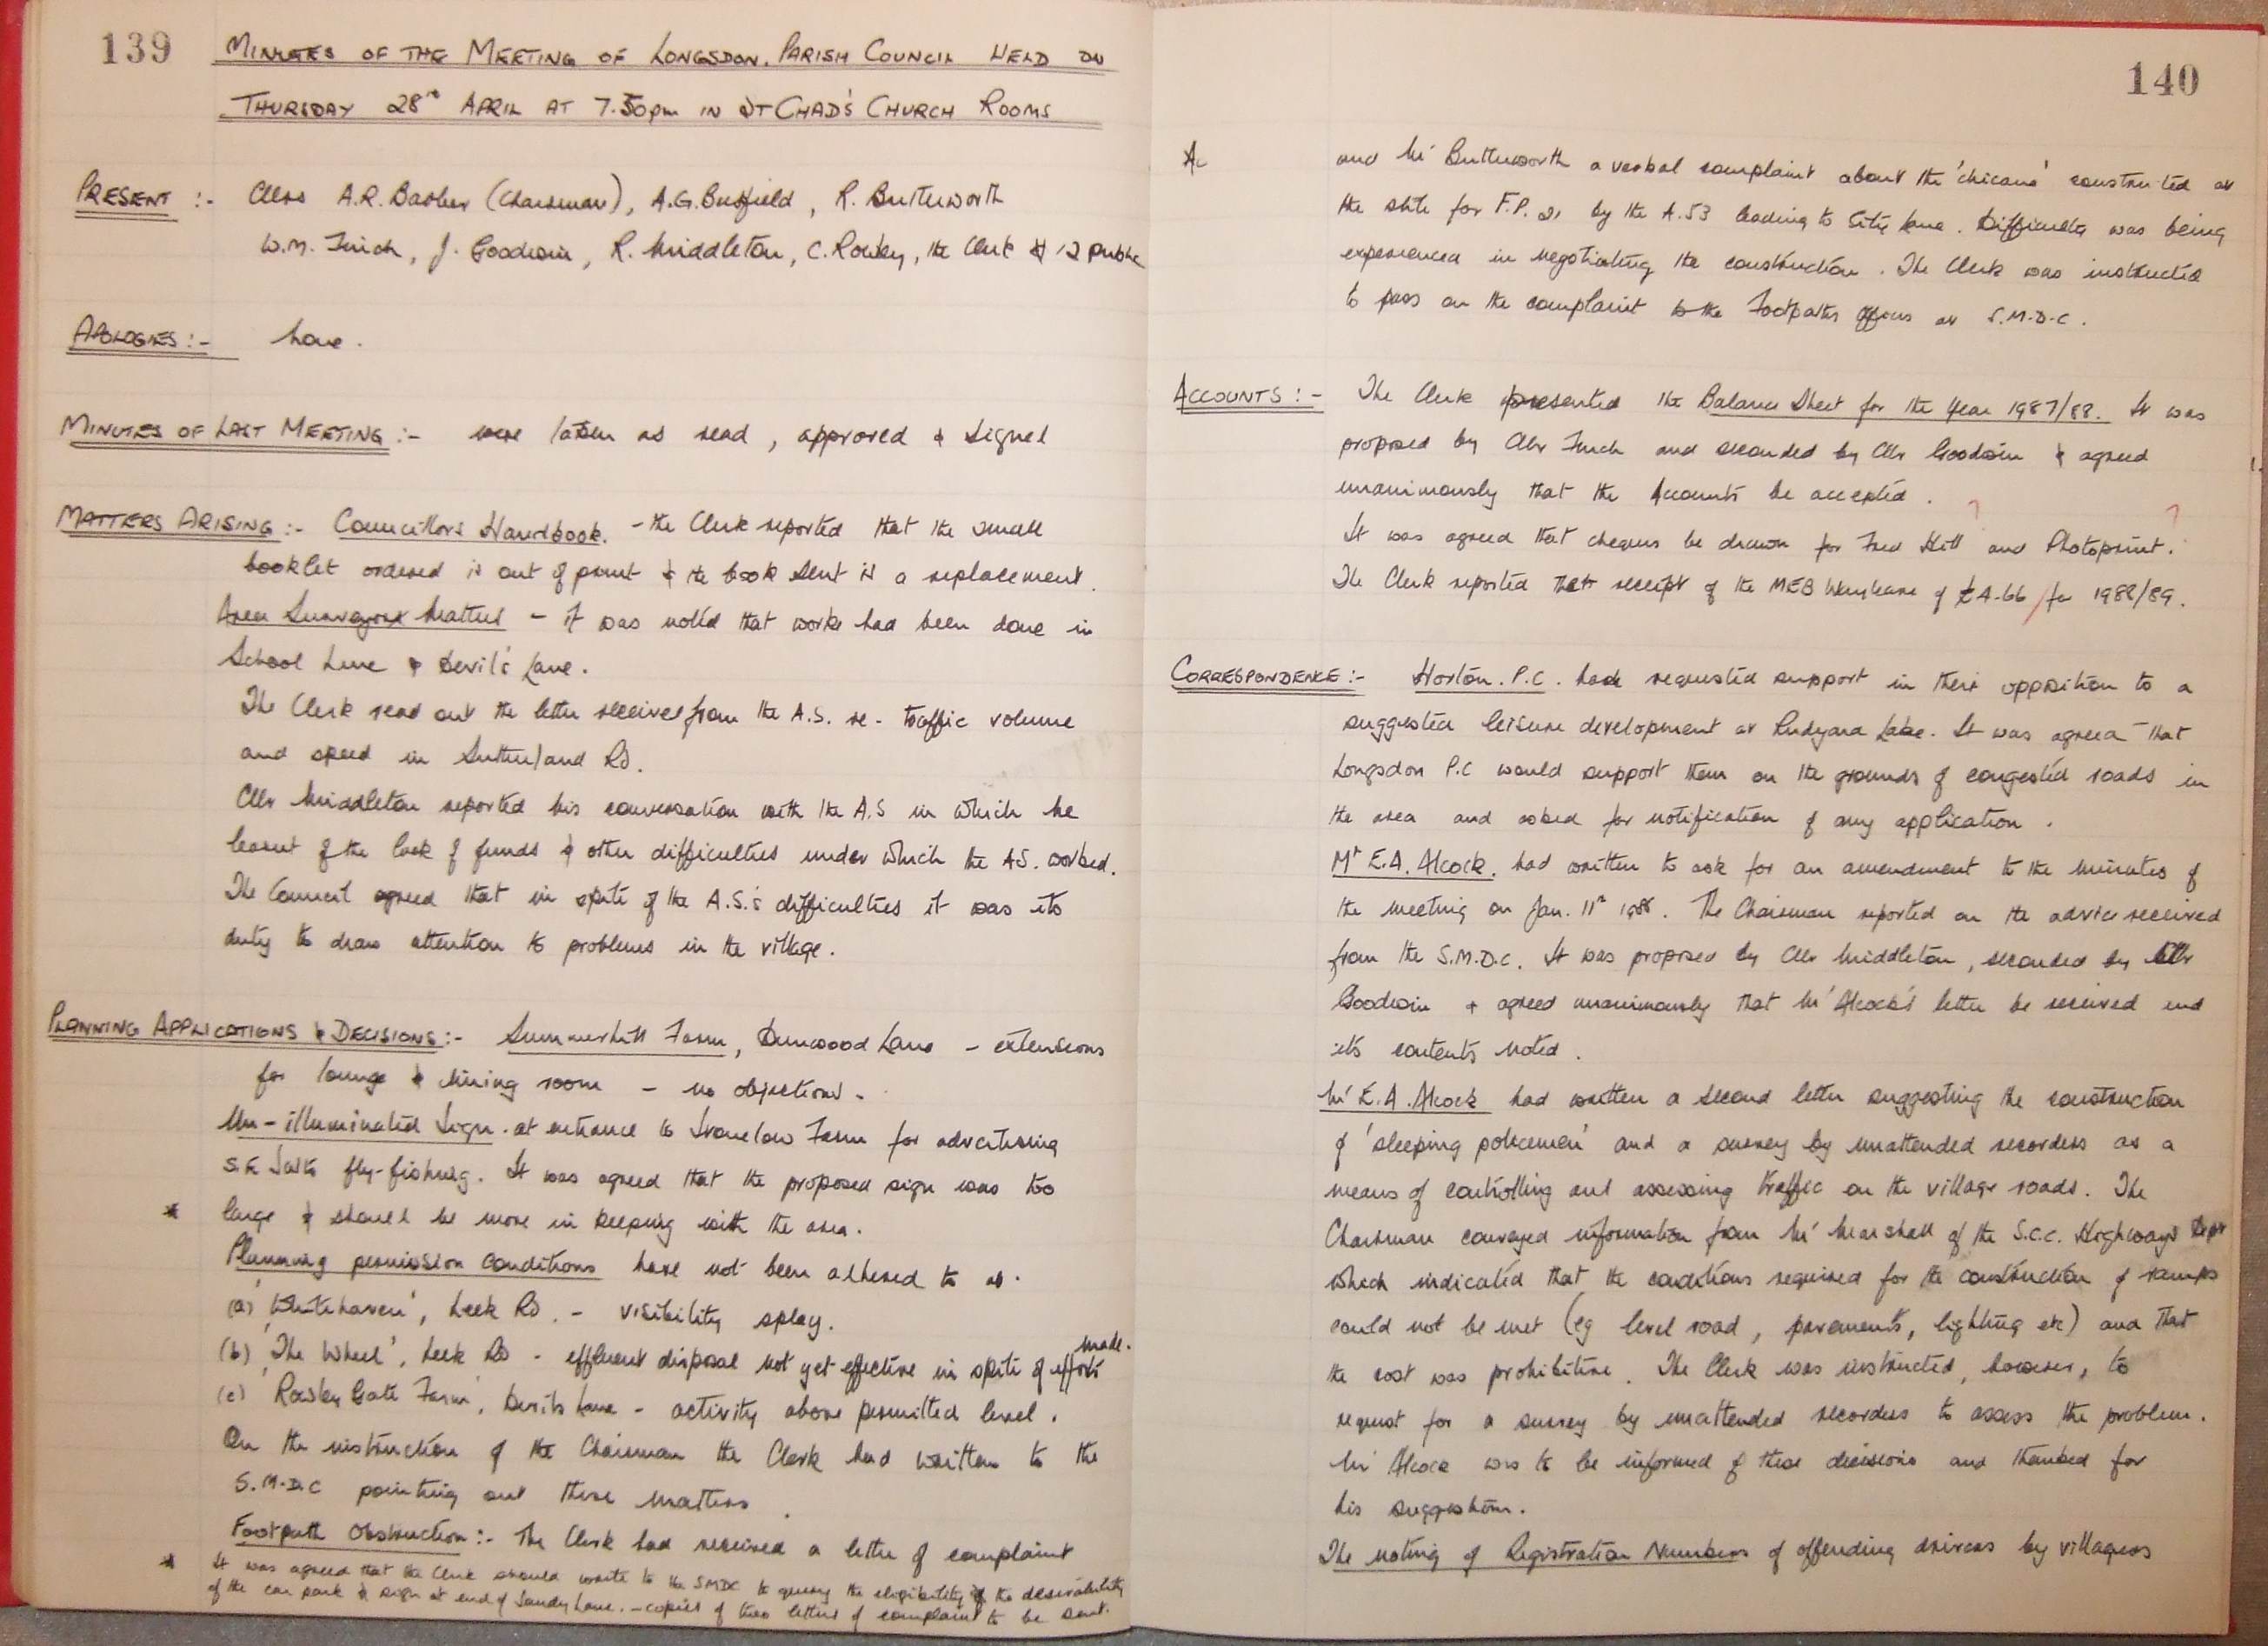 139
MINUTES OF THE MEETING OF LONGSDON. PARISH COUNCIL HELD ON
THURSDAY 28th APRIL AT 7.30pm IN ST CHAD'S CHURCH ROOMS
PRESENT :- Cllrs A.R. Barber (Chairman), A.G. Busfield, R. Butterworth
W.M. Finch, J. Goodwin, R. Middleton, C. Rowley, the Clerk & 12 public
APOLOGIES :- None.
MINUTES OF LAST MEETING :- were taken as read, approved & signed
MATTERS ARISING :- Councillors Handbook. - the Clerk reported that the small
booklet ordered is out of print & the book sent is a replacement.
Area Surveyors Matters - it was noted that works had been done in
School Lane & Devil's Lane.
The Clerk read out the letter received from the A.S. re- traffic volume
and speed in Sutherland Rd.
Cllr Middleton reported his conversation with the A.S in which he
learnt of the lack of funds & other difficulties under which the AS. worked.
The Council agreed that in spite of the A.S.'s difficulties it was its
duty to draw attention to problems in the village.
PLANNING APPLICATIONS & DECISIONS :- Summerhill Farm, Dunwood Lane - extensions
for lounge & dining room - no objections.
Un-illuminated Sign. at entrance to Stonelow Farm for advertising
fly-fishing. It was agreed that the proposed sign was too
* large & should be more in keeping with the area.
Planning permission conditions have not been adhered to at.
(a) 'Whitehaven', Leek Rd. - visibility splay.
(b) 'The Wheel', Leek Rd - effluent disposal not yet effective in spite of efforts made.
(c) 'Rowley Gate Farm', Devils Lane - activity above permitted level.
On the instruction of the Chairman the Clerk had written to the
S.M.D.C pointing out these matters.
Footpath Obstruction :- The Clerk had received a letter of complaint
* It was agreed that the Clerk should write to the SMDC to query the eligibility & the desirability
of the car park & sign at end of Sandy Lane. - copies of two letters of complaint to be sent.
140
Ac
and Mr Butterworth a verbal complaint about the 'chicane' constructed at
the stile for F.P. 21 by the A.53 leading to City Lane. Difficulty was being
experienced in negotiating the construction. The Clerk was instructed
to pass on the complaint to the Footpaths Officer at S.M.D.C.
ACCOUNTS :- The Clerk presented the Balance Sheet for the Year 1987/88. It was
proposed by Cllr Finch and seconded by Cllr Goodwin & agreed
unanimously that the Accounts be accepted.
It was agreed that cheques be drawn for Fred Hill ? and Photoprint. ?
The Clerk reported receipt of the MEB Wayleave of £4-66 for 1988/89.
CORRESPONDENCE :- Horton. P.C. had requested support in their opposition to a
suggested leisure development at Rudyard Lake. It was agreed that
Longsdon P.C would support them on the grounds of congested roads in
the area and asked for notification of any application.
Mr E.A. Alcock. had written to ask for an amendment to the minutes of
the meeting on Jan. 11th 1988. The Chairman reported on the advice received
from the S.M.D.C. It was proposed by Cllr Middleton, seconded by Cllr
Goodwin + agreed unanimously that Mr Alcock's letter be received and
its contents noted.
Mr E.A. Alcock had written a second letter suggesting the construction
of 'sleeping policemen' and a survey by unattended recorders as a
means of controlling and assessing traffic on the village roads. The
Chairman conveyed information from Mr Marshall of the S.C.C. Highways Dept
which indicated that the conditions required for the construction of ramps
could not be met (eg level road, pavements, lighting etc) and that
the cost was prohibitive. The Clerk was instructed, however, to
request for a survey by unattended recorders to assess the problem.
Mr Alcock was to be informed of these decisions and thanked for
his suggestions.
The noting of Registration Numbers of offending drivers by villagers